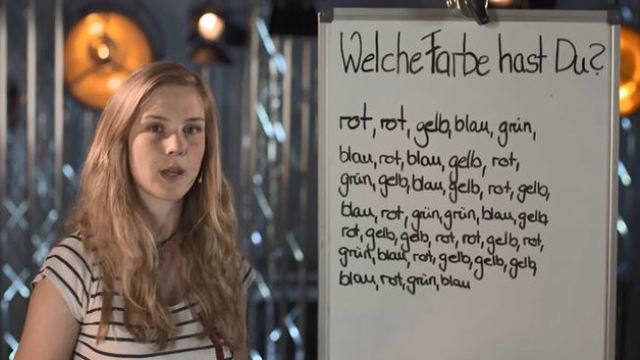 Welche Farbe hast Du?
rot, rot, gelb, blau, grün,
blau, rot, blau, gelb, rot,
grün, gelb, blau, gelb, rot, gelb,
blau, rot, grün, grün, blau, gelb
rot, gelb, gelb, rot, rot, gelb, rot,
grün, blau, rot, gelb, gelb, gelb,
blau, rot, grün, blau